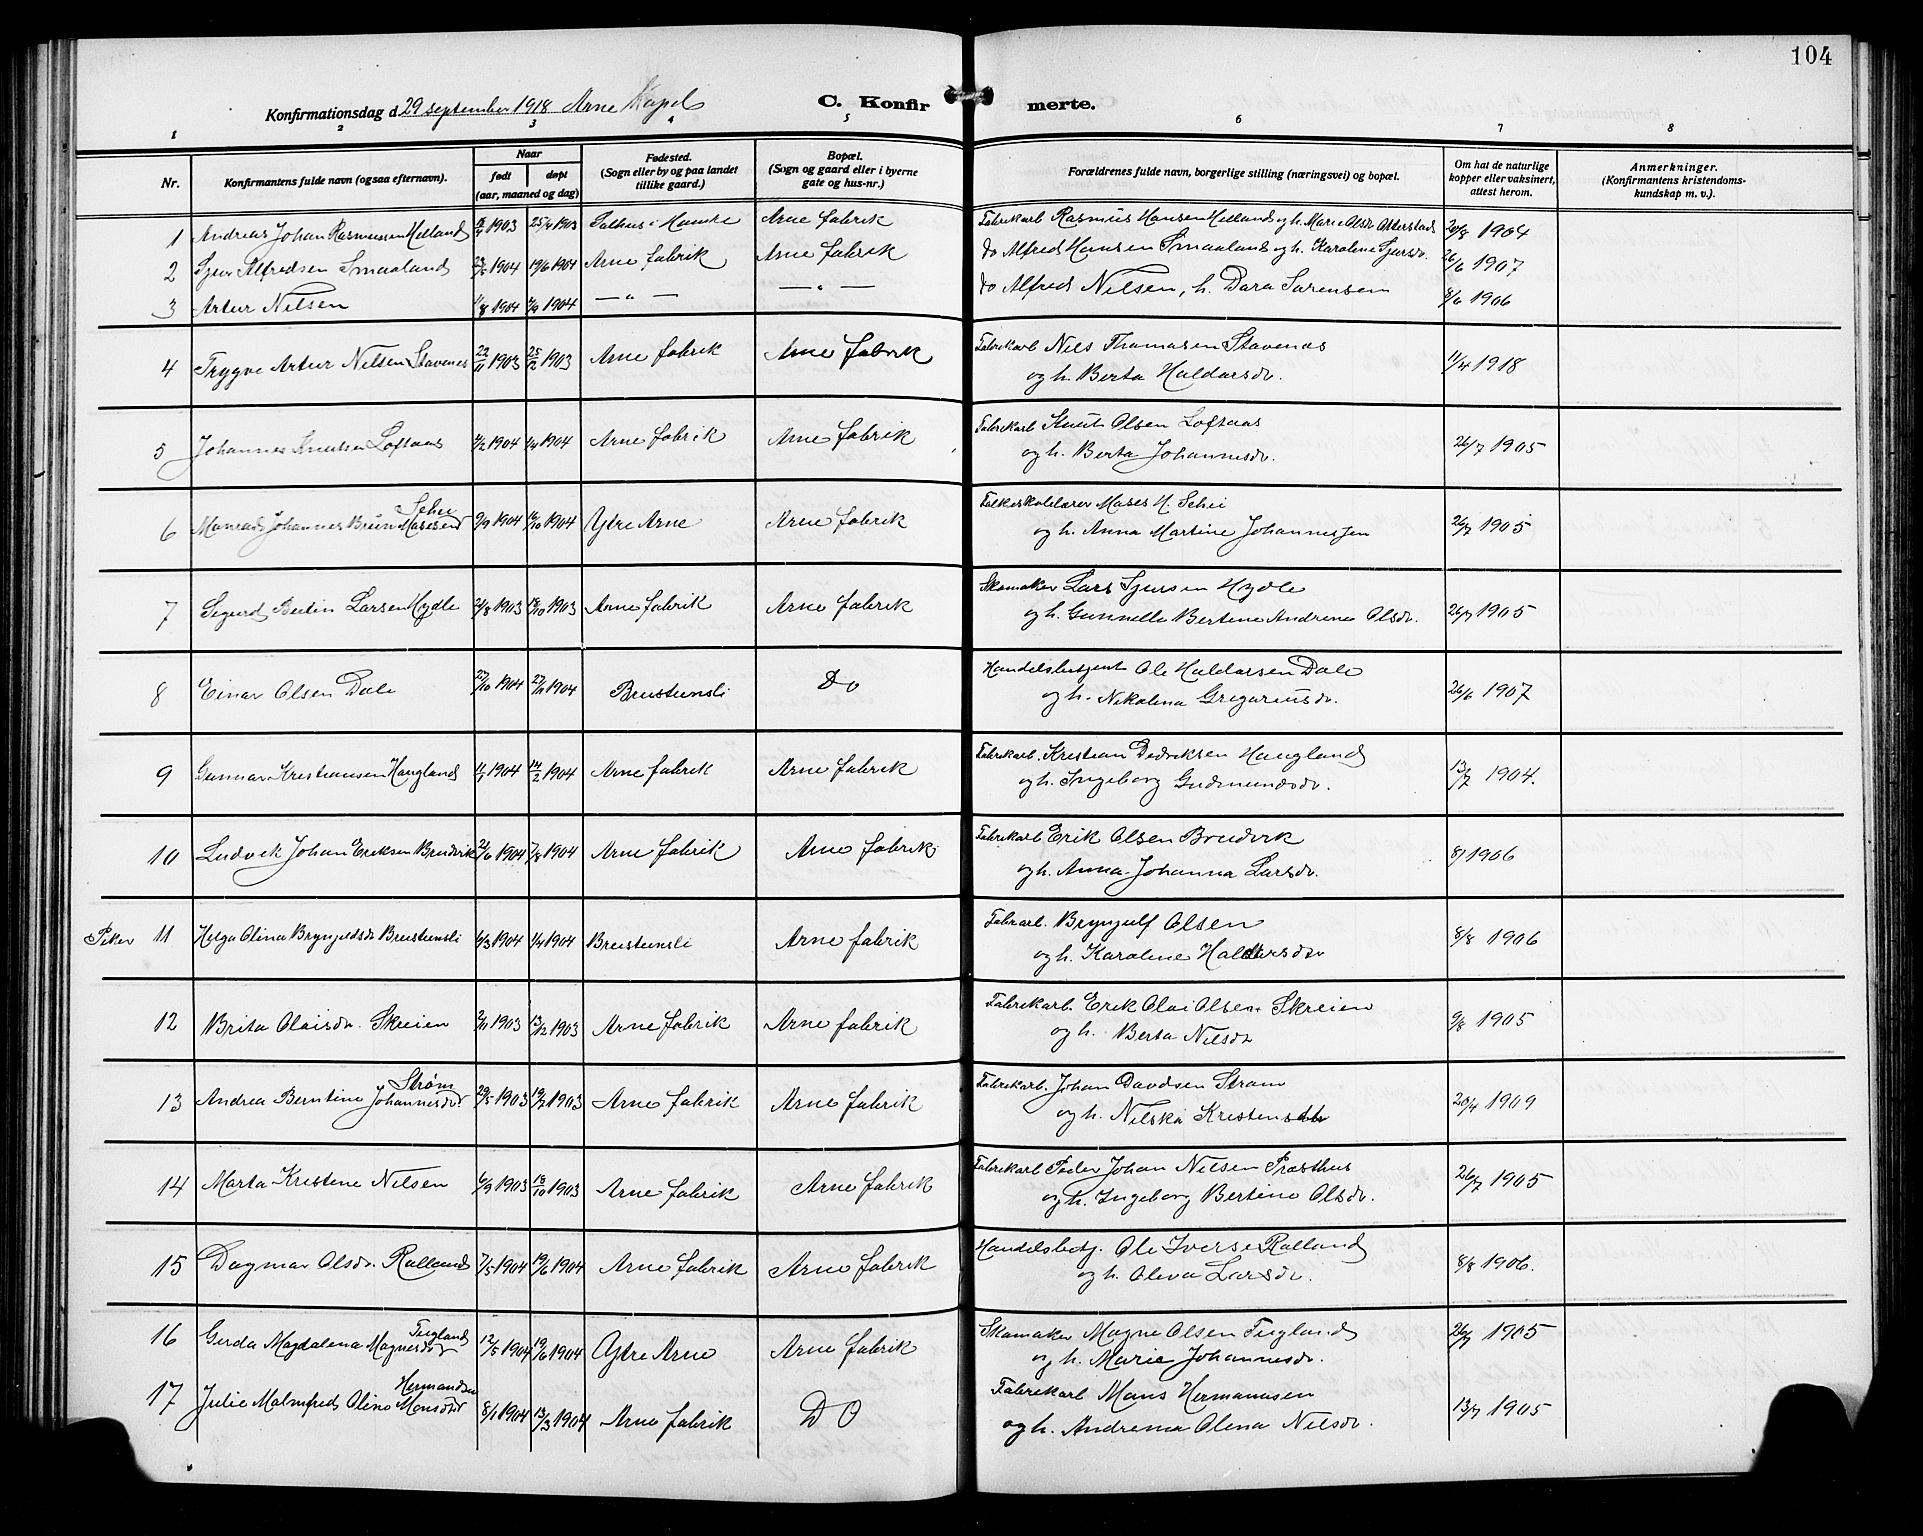 104
Konfirmationsdag d. 29 september 1918 Arne Kapel
C. Konfirmerte.
1 2 3 4 5 6 7 8
Nr.
Konfirmantens fulde navn (ogsaa efternavn).
Naar
født døpt
(aar, maaned og dag)
Fødested.
(Sogn eller by og paa landet
tillike gaard.)
Bopæl.
(Sogn og gaard eller i byerne
gate og hus-nr.)
Forældrenes fulde navn, borgerlige stilling (næringsvei) og bopæl.
Om hat de naturlige
kopper eller vaksinert,
attest herom.
Anmerkninger.
(Konfirmantens kristendoms-
kundskap m. v.).
1 Andreas Johan Rasmussen Helland 1903 25/4 1903 Arne fabrik Fabrikarb Rasmus Hansen Helland og h. Marie Olsdr 20/8 1904
2 Alfredsen Smaaland 1904 19/6 1904 Arne fabrik Arne fabrik do Alfred Hansen Smaaland og h. Karolene Sjursdr. 26/6 1907
3 Artur Nilsen 1/8 1904 1904 — " — — " — do Alfred Nilsen, h. Dora Sorensen 8/6 1906
4 Trygve Artur Nilsen Stavenes 22/11 1903 25/12 1903 Arne fabrik Arne fabrik Fabrikarb Nils Thomasen Stavenes 11/4 1918
og h. Berta Haldorsdr.
5 Johannes Knutsen Loftaas 2/2 1904 1/4 1904 Arne fabrik Arne fabrik Fabrikarb Knut Olsen Loftaas 26/7 1905
og h. Berta Johannesdr.
Schei
6 Monrad Johannes Brun Mosesen 9/9 1904 16/10 1904 Ytre Arne Arne fabrik Folkeskolelærer Moses M. Schei 26/7 1905
og h. Anna Martine Johannesen
7 Sigurd Bertin Larsen Hydle 2/8 1903 18/10 1903 Arne fabrik Arne fabrik Skomaker Lars Sjursen Hydle 26/7 1905
og h. Gunnelle Bertine Andrene Olsdr.
8 Einar Olsen Dale 27/10 1904 27/11 1904 Breistensli Do Handelsbetjent Ole Haldorsen Dale 26/6 1907
og h. Nikolina Gregoriusdr.
9 Gunnar Kristiansen Haugland 11/1 1904 14/2 1904 Arne fabrik Arne fabrik Fabrikarb. Kristian Dedriksen Haugland 13/7 1904.
og h. Ingeborg Gudmundsdr.
10 Ludvik Johan Eriksen Brudvik 21/6 1904 7/8 1904 Arne fabrik Arne fabrik Fabrikarb Erik Olsen Brudvik 1906
og h. Anna Johanna Larsdr.
Piker 11 Helga Olina Brynjulfsdr Breistensli 6/3 1904 1/4 1904 Breistensli Arne fabrik Fabrarb. Brynjulf Olsen 8/8 1906
og h. Karoline Haldorsdr
12 Brita Olaisdr. Skreien 2/11 1903 13/12 1903 Arne fabrik Arne fabrik Fabrikarb. Erik Olai Olsen Skreien 9/8 1905
og h. Berta Nilsdr
Strøm
13 Andrea Berntine Johannesdr 29/5 1903 19/7 1903 Arne fabrik Arne fabrik Fabrikarb. Johan Davidsen Strøm 20/4 1909
og h. Nilska Kristensdtr
14 Marta Kristene Nilsen 6/9 1903 18/10 1903 Arne fabrik Arne fabrik Fabrikarb Peder Johan Nilsen Præsthus 26/7 1905
og h. Ingeborg Bertine Olsdr.
15 Dagmar Olsdr. Rolland 7/5 1904 19/6 1904 Arne fabrik Arne fabrik Handelsbetj. Ole Iversen Rolland 8/8 1906.
og h. Oliva Larsdr.
Tugland
16 Gerda Magdalena Magnesdr 12/5 1904 19/6 1904 Ytre Arne Arne fabrik Skomaker Magne Olsen Tugland 26/7 1905
og h. Marie Johannesdr.
Hermandsen
17 Julie Malmfrid Oline Monsdtr 8/1 1904 13/3 1904 Arne fabrik DO Fabrikarb Mons Hermansen 13/7 1905
og h. Andrema Olena Nilsdr.